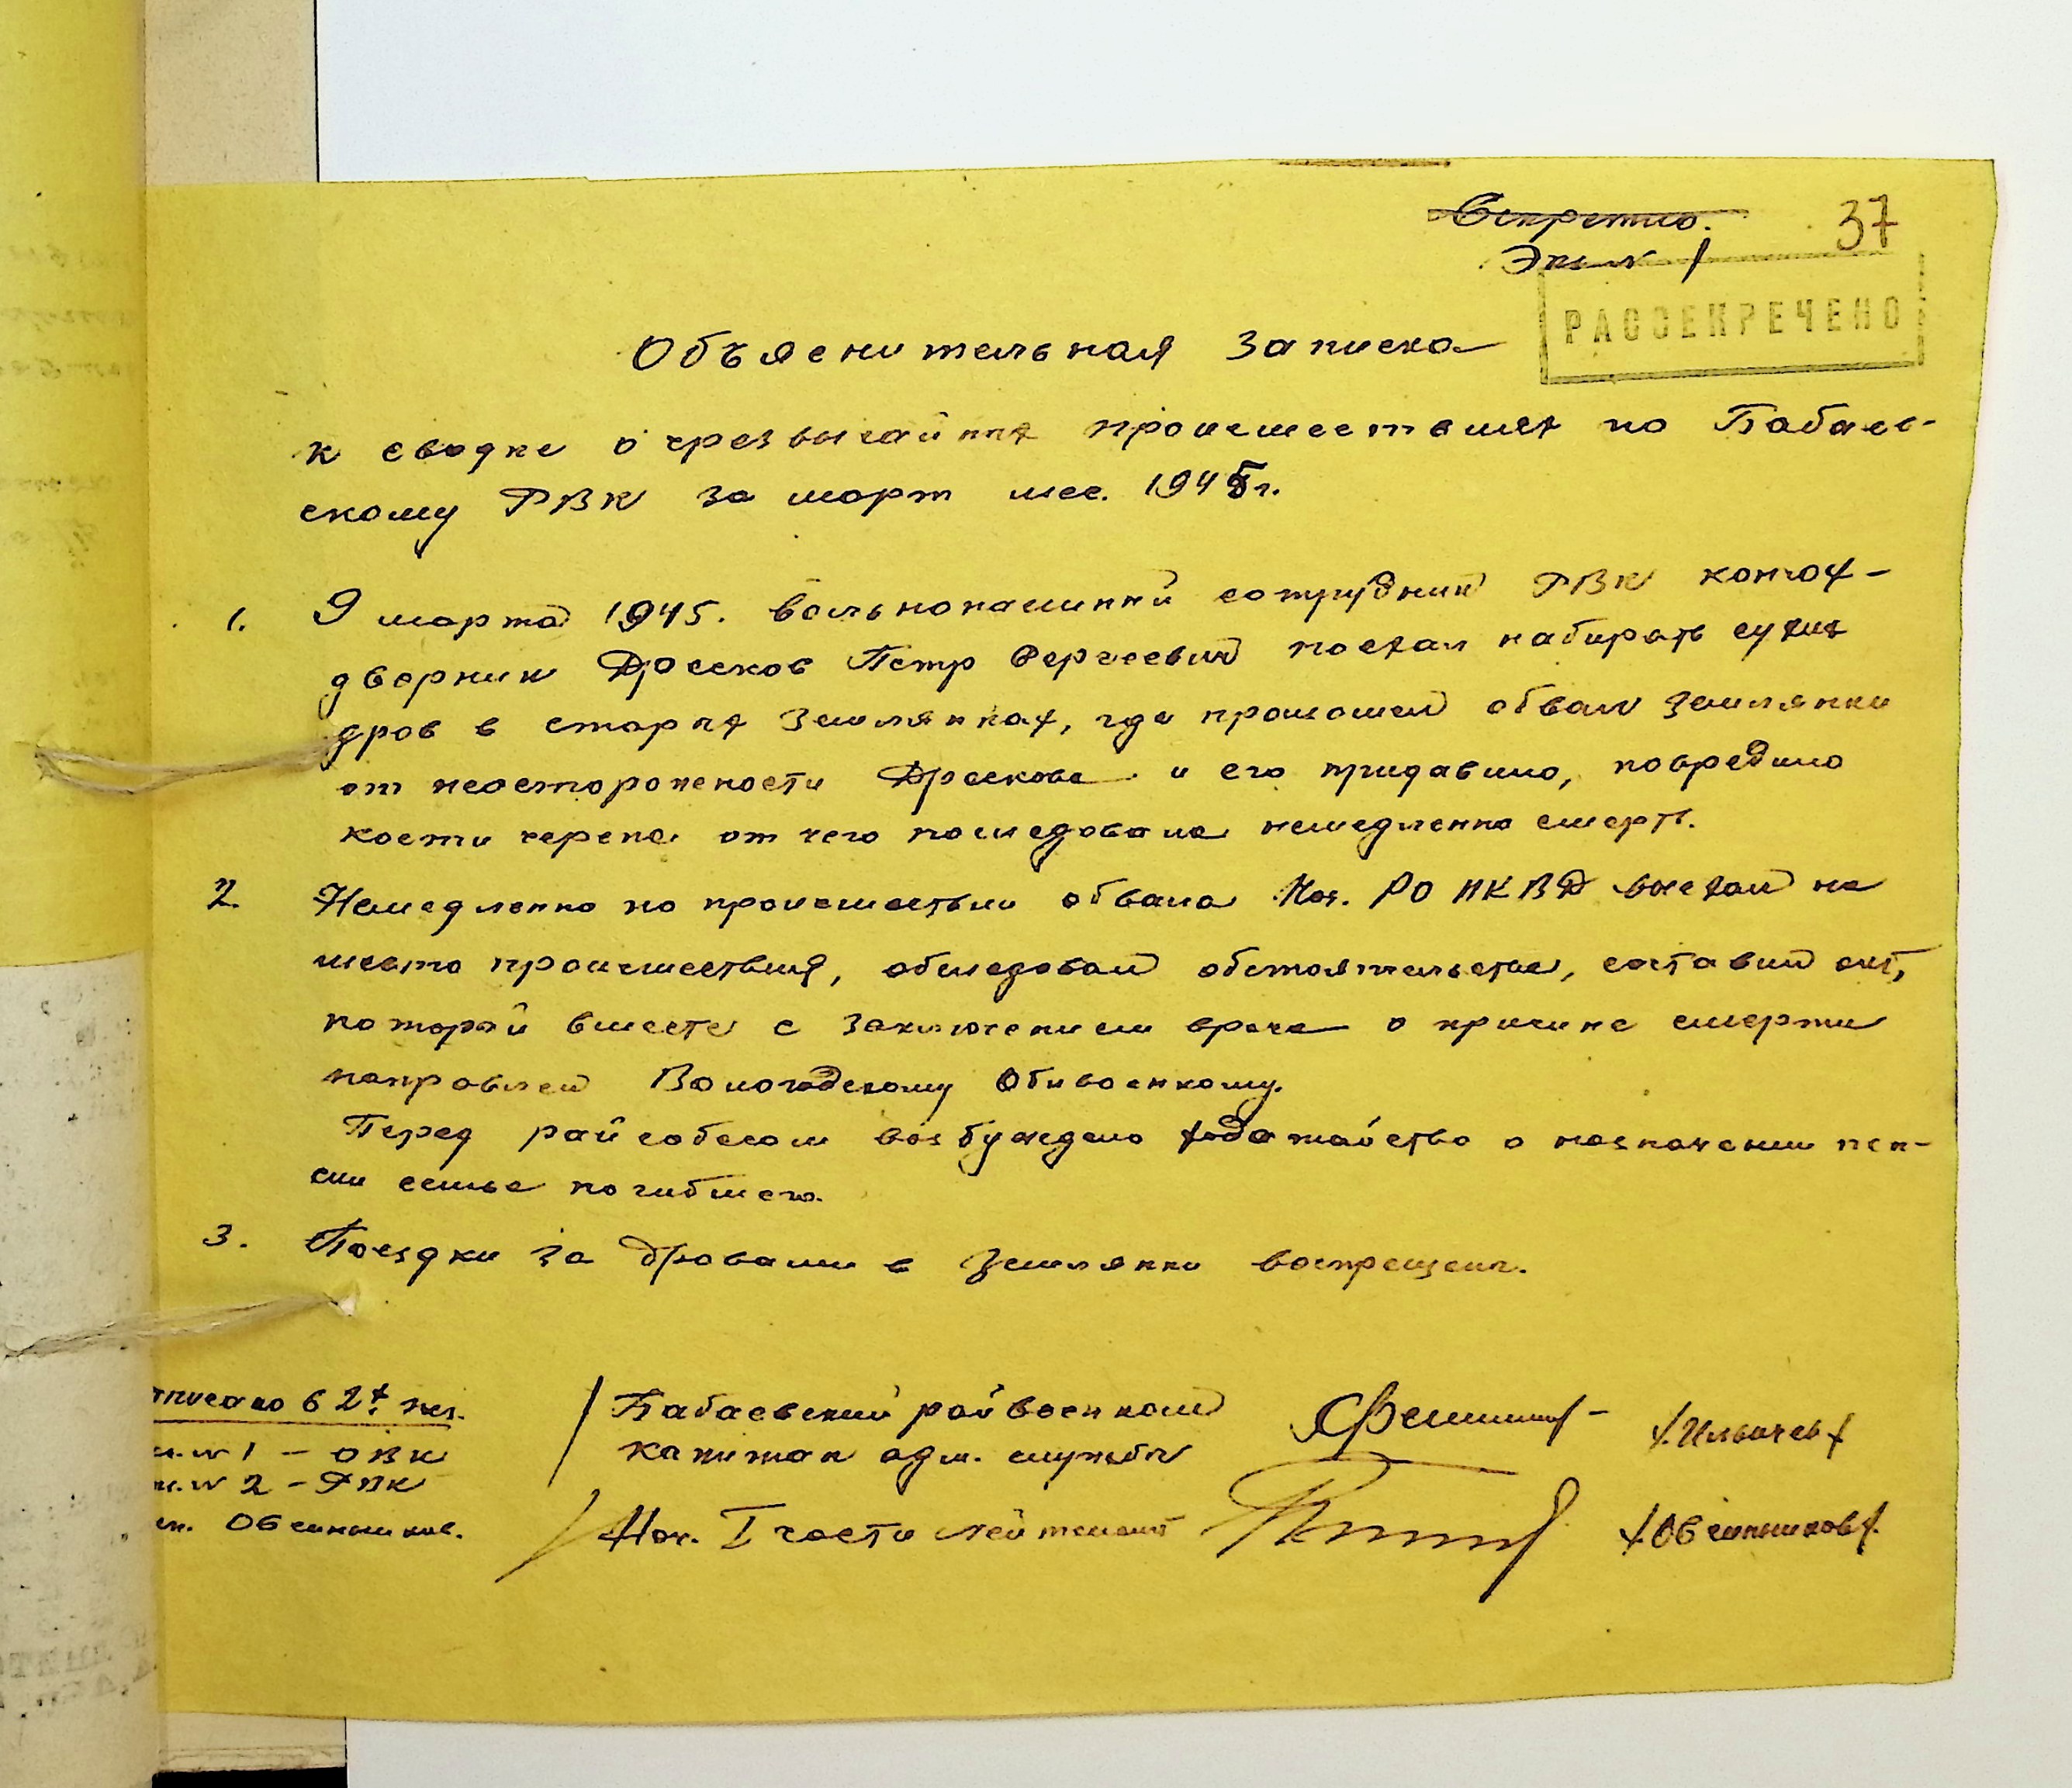 Секретно.
37
Экз. № 1
РАССЕКРЕЧЕНО
Объяснительная записка
к сводке о чрезвычайных происшествиях по Бабаев-
скому РВК за март мес. 1945г.
1. 9 марта 1945. вольнонаемный сотрудник РВК конюх-
дворник Дросков Петр Сергеевич поехал набирать сухих
дров в старых землянках, где произошел обвал землянки
от неосторожности Дроскова и его придавило, повредило
кости черепа от чего последовала немедленно смерть.
2. Немедленно по происшествии обвала Нач. РО НКВД выехал на
место происшествия, обследовал обстоятельства, составил акт,
который вместе с заключением врача о причине смерти
направлен Вологодскому Облвоенкому.
Перед райсобесом возбуждено ходатайство о назначении пен-
сии семье погибшего.
3. Поездки за дровами в землянки воспрещены.
/Бабаевский райвоенком
капитан адм. службы
/Ильичев/
/Нач. I части лейтенант
/Овчинников/.
тпечатано в 2х экз.
з. № 1 – ОВК
з. № 2 – РВК
сп. Овчинников.